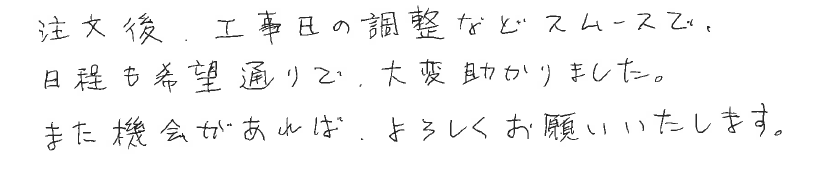 注文後、工事日の調整などスムースで、
日程も希望通りで、大変助かりました。
また機会があれば、よろしくお願いいたします。